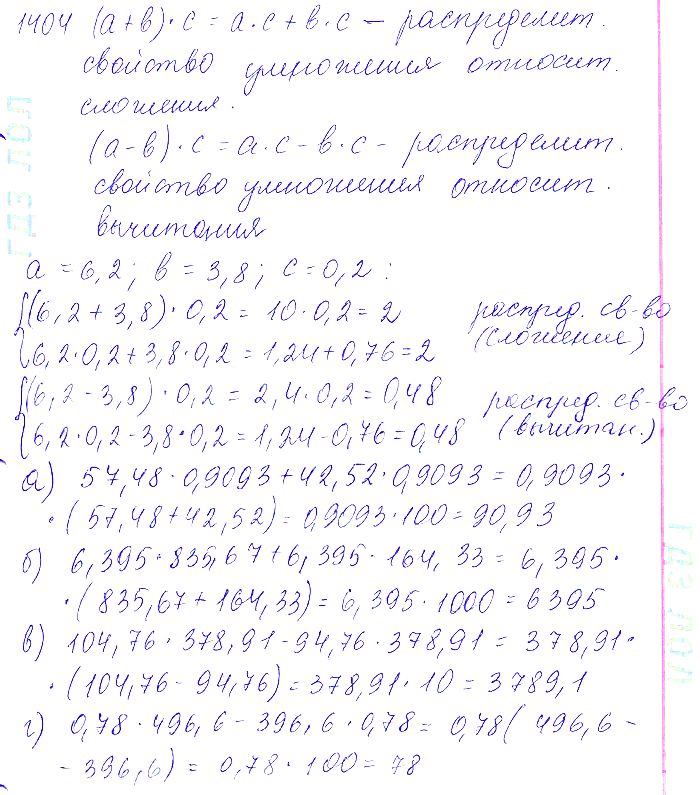 1404 (а+в)·с = а·с + в·с — распределит.
свойство умножения относит.
сложения.
(а-в)·с = а·с - в·с - распределит.
свойство умножения относит.
вычитания
а = 6,2; в = 3,8; с = 0,2 :
(6,2 + 3,8)·0,2 = 10·0,2 = 2 распред. св-во
6,2·0,2+3,8·0,2 = 1,24+0,76=2 (сложения)
(6,2-3,8)·0,2 = 2,4·0,2=0,48 распред. св-во
6,2·0,2-3,8·0,2=1,24-0,76=0,48 (вычитан.)
а) 57,48·0,9093+42,52·0,9093=0,9093·
·(57,48+42,52)=0,9093·100=90,93
б) 6,395·835,67+6,395·164,33=6,395·
·(835,67+164,33)=6,395·1000=6395
в) 104,76·378,91-94,76·378,91=378,91·
·(104,76-94,76)=378,91·10=3789,1
г) 0,78·496,6-396,6·0,78=0,78(496,6-
-396,6)=0,78·100=78